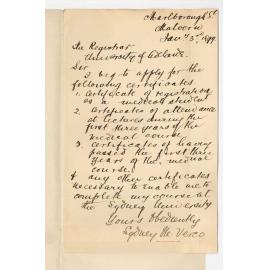 Marlborough St
Malvern
Jany 3rd 1899
The Registrar
University of Adelaide.
Sir
I beg to apply for the
following certificates
1. Certificate of registration
as a medical student
2. Certificates of attendance
at lectures during the
first three years of the
medical course.
3. Certificates of having
passed the first three
years of the medical
course.
& any other certificates
necessary to enable me to
complete my course at
the Sydney University
Yours Obediently
Sydney M. Verco